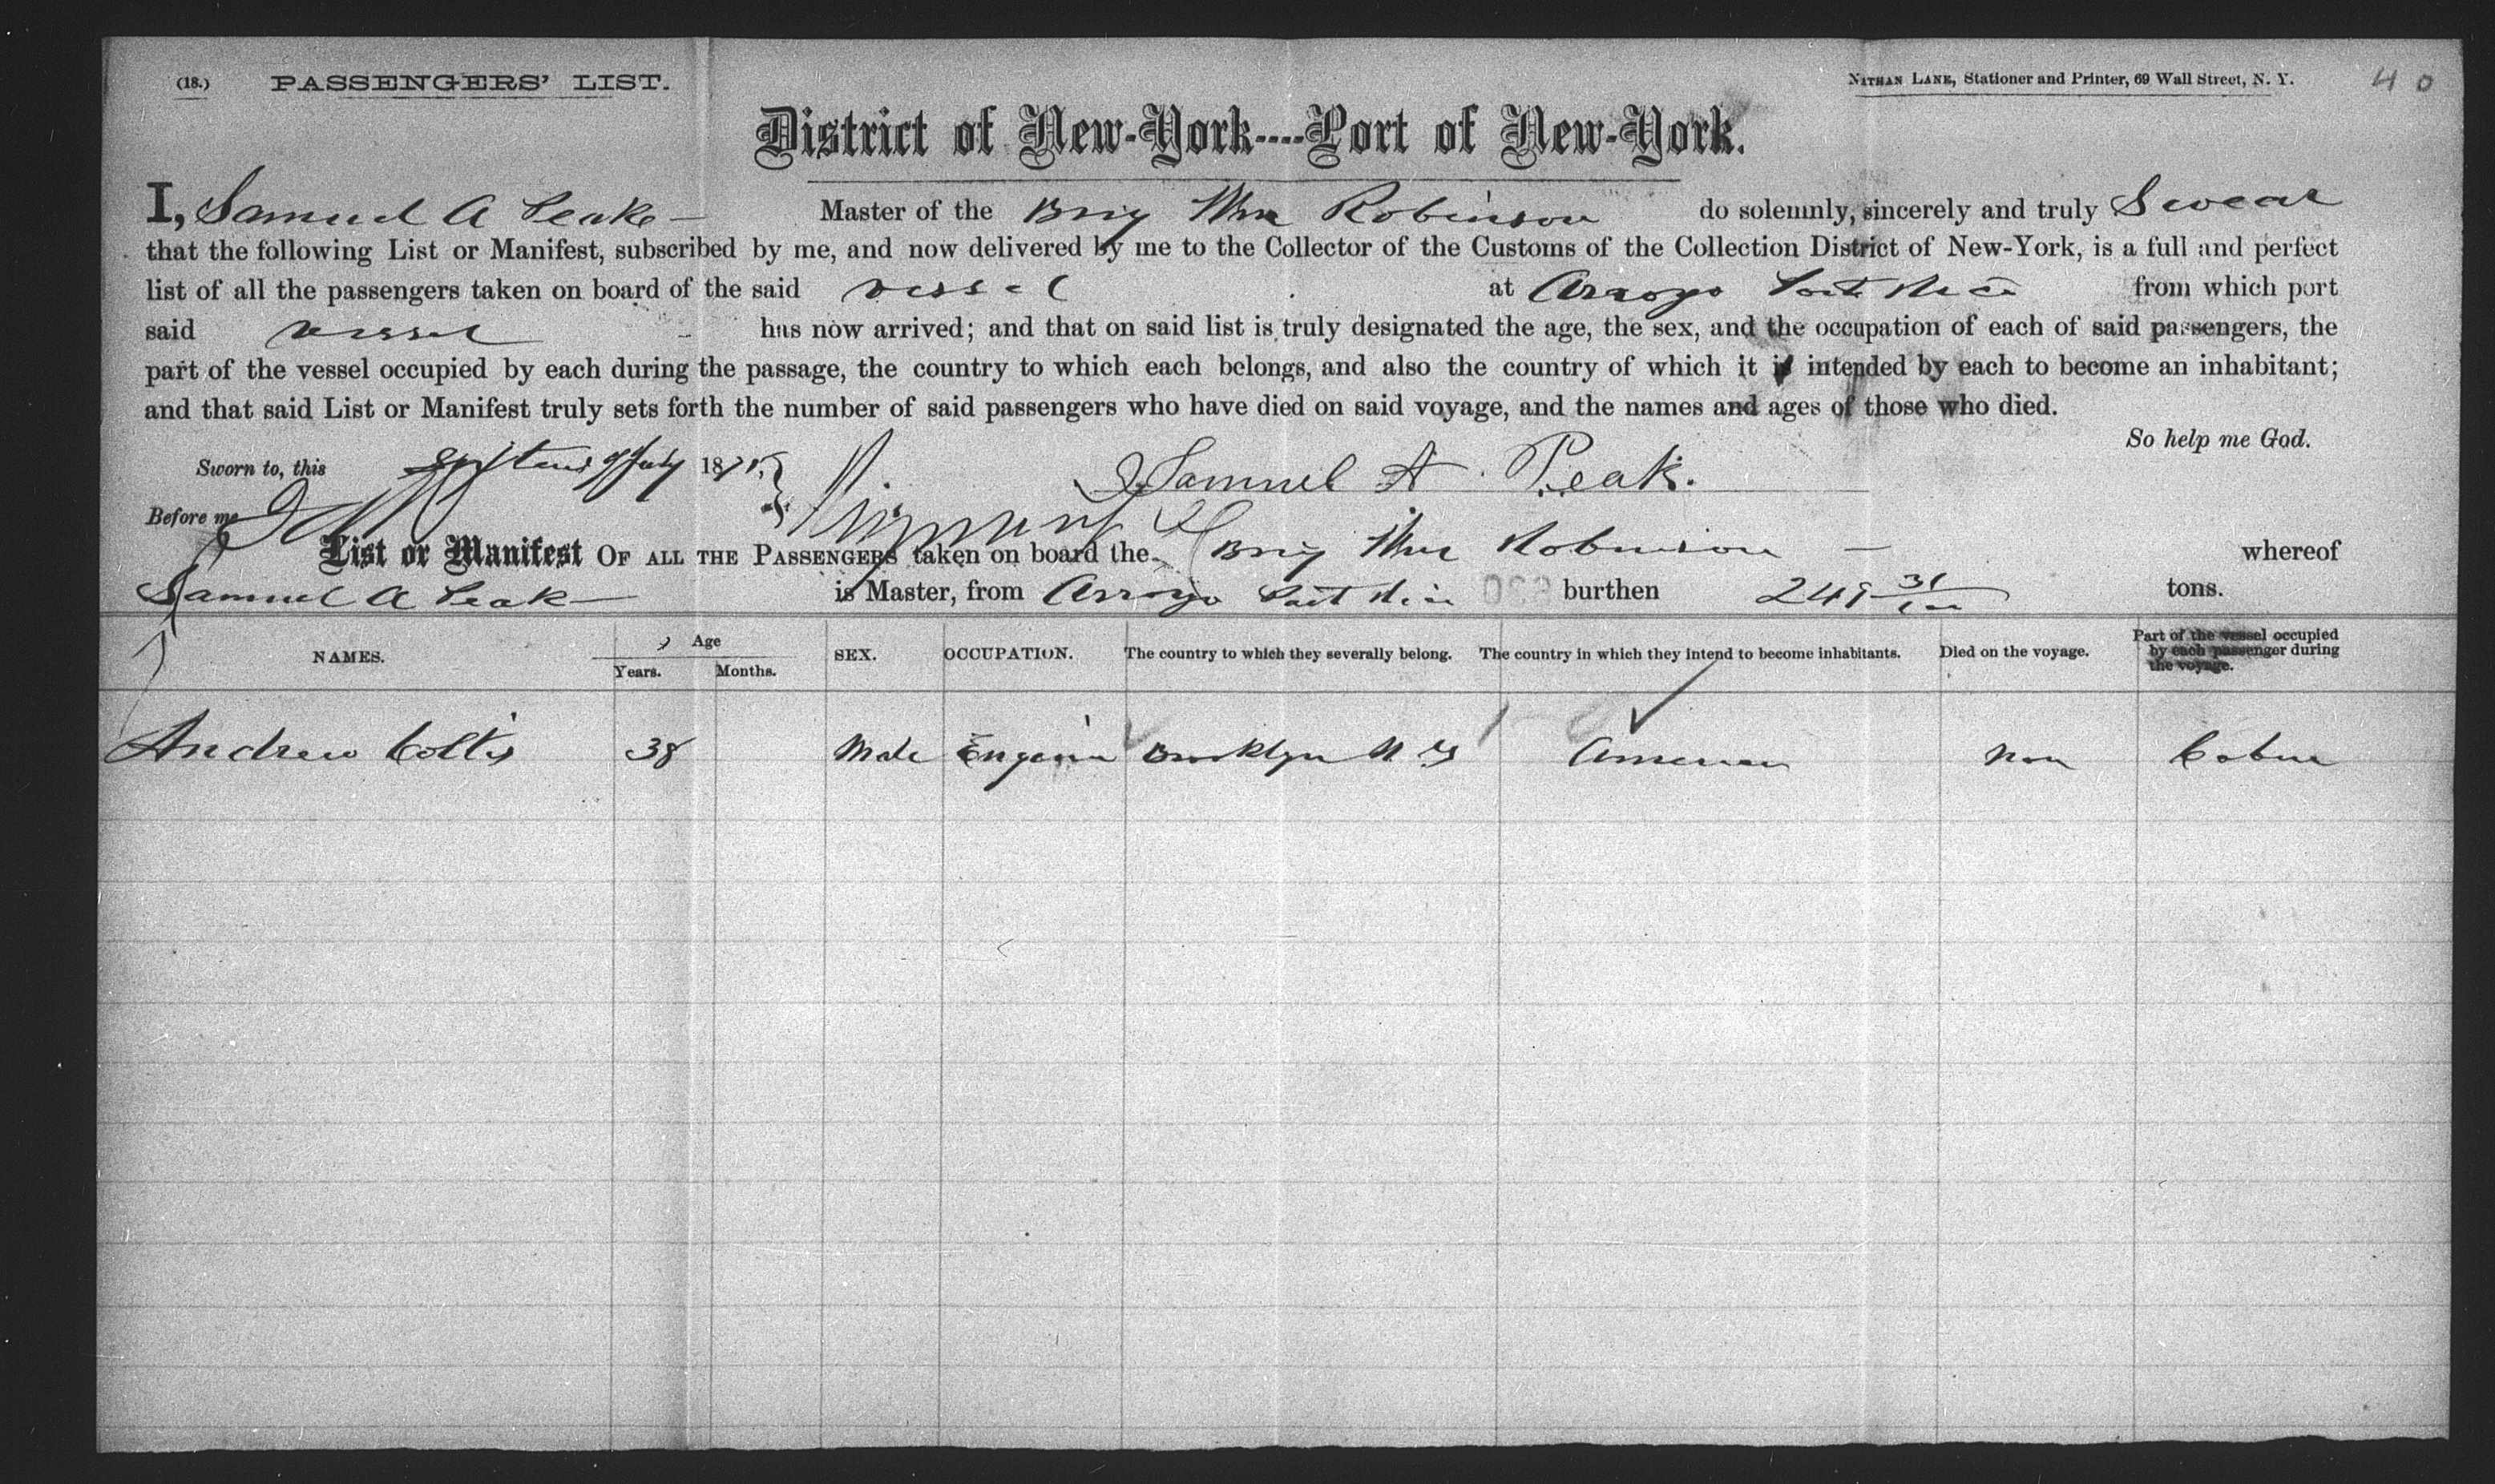 (18.) PASSENGERS' LIST. NATHAN LANE, Stationer and Printer, 69 Wall Street, N. Y. 40
District of New-York----Port of New-York.
I, Samuel A Peake Master of the Brig Wm Robinson do solemnly, sincerely and truly Swear
that the following List or Manifest, subscribed by me, and now delivered by me to the Collector of the Customs of the Collection District of New-York, is a full and perfect
list of all the passengers taken on board of the said vessel at Arroyo Porto Rico from which port
said vessel has now arrived; and that on said list is truly designated the age, the sex, and the occupation of each of said passengers, the
part of the vessel occupied by each during the passage, the country to which each belongs, and also the country of which it is intended by each to become an inhabitant;
and that said List or Manifest truly sets forth the number of said passengers who have died on said voyage, and the names and ages of those who died.
So help me God.
Sworn to, this July 187 Samuel A. Peak.
Before me
List or Manifest OF ALL THE PASSENGERS taken on board the Brig Wm Robinson whereof
Samuel A Peak is Master, from Arroyo Porto Rico burthen tons.
NAMES. Age Years. Months. SEX. OCCUPATION. The country to which they severally belong. The country in which they intend to become inhabitants. Died on the voyage. Part of the vessel occupied by each passenger during the voyage.
Andrew Coltis 38 Male Brooklyn N Y